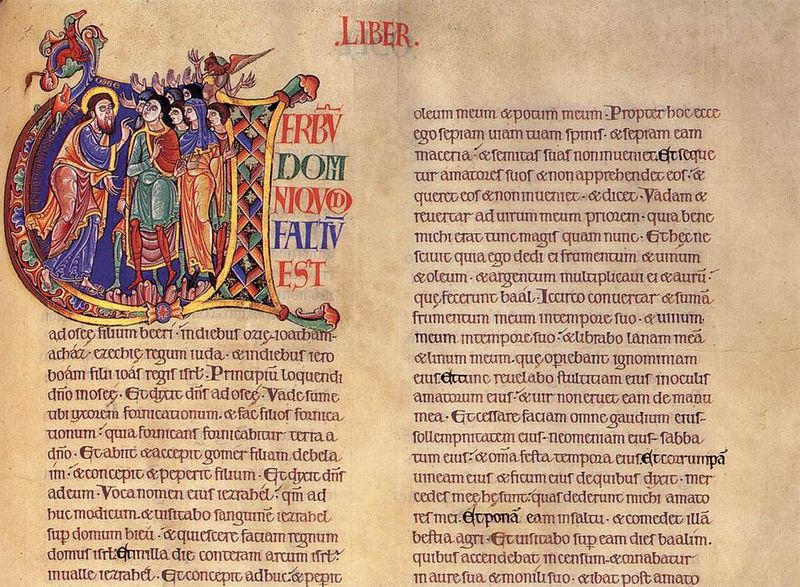 .LIBER.
OSEE
VERBŪ
DOMI
NI QVOD
FACTŪ
EST
ad osee filium beeri · in diebus ozię · ioatham ·
achaz · ezechię regum iuda · & in diebus iero
boam filii ioas regis isrł · Principiū loquendi
dn̄o in osee · Et dixit dn̄s ad osee · Vade sume
tibi uxorem fornicationum · & fac filios fornica
tionum · quia fornicans fornicabitur terra a
dn̄o · Et abiit & accepit gomer filiam debela
im · & concepit & peperit filium · Et dixit dn̄s
ad eum · Voca nomen eius iezrahel · qm̄ ad
huc modicum & uisitabo sanguinē iezrahel
sup domum hieu · & quiescere faciam regnum
domus isrł · Et in illa die conteram arcum isrł ·
in ualle iezrahel · Et concepit adhuc · & pepit
oleum meum & potum meum · Propter hoc ecce
ego sepiam uiam tuam spinis · & sepiam eam
maceria · & semitas suas non inueniet · Et seque
tur amatores suos & non apprehendet eos · &
queret eos & non inueniet · & dicet · Vadam &
reuertar ad uirum meum priorem · quia bene
michi erat tunc magis quam nunc · Et hęc ne
sciuit quia ego dedi ei frumentum & uinum
& oleum · & argentum multiplicaui ei & aurū ·
quę fecerunt baal · Iccirco conuertar & sumā
frumentum meum in tempore suo · & uinum
meum in tempore suo · & librabo lanam meā
& linum meum · quę opiebant ignominiam
eius · Et tunc reuelabo stultitiam eius in oculis
amatorum eius · & uir non eruet eam de manu
mea · Et cessare faciam omne gaudium eius ·
sollempnitatem eius · neomeniam eius · sabba
tum eius · & om̄a festa tempora eius · Et corrumpā
uineam eius & ficum eius de quibus dixit · mer
cedes meę hę sunt · quas dederunt michi amato
res mei · Et ponā eam in saltu · & comedet illā
bestia agri · Et uisitabo sup eam dies baalim ·
quibus accendebat incensum · & ornabatur
in aure sua & monili suo · & ibat post amato